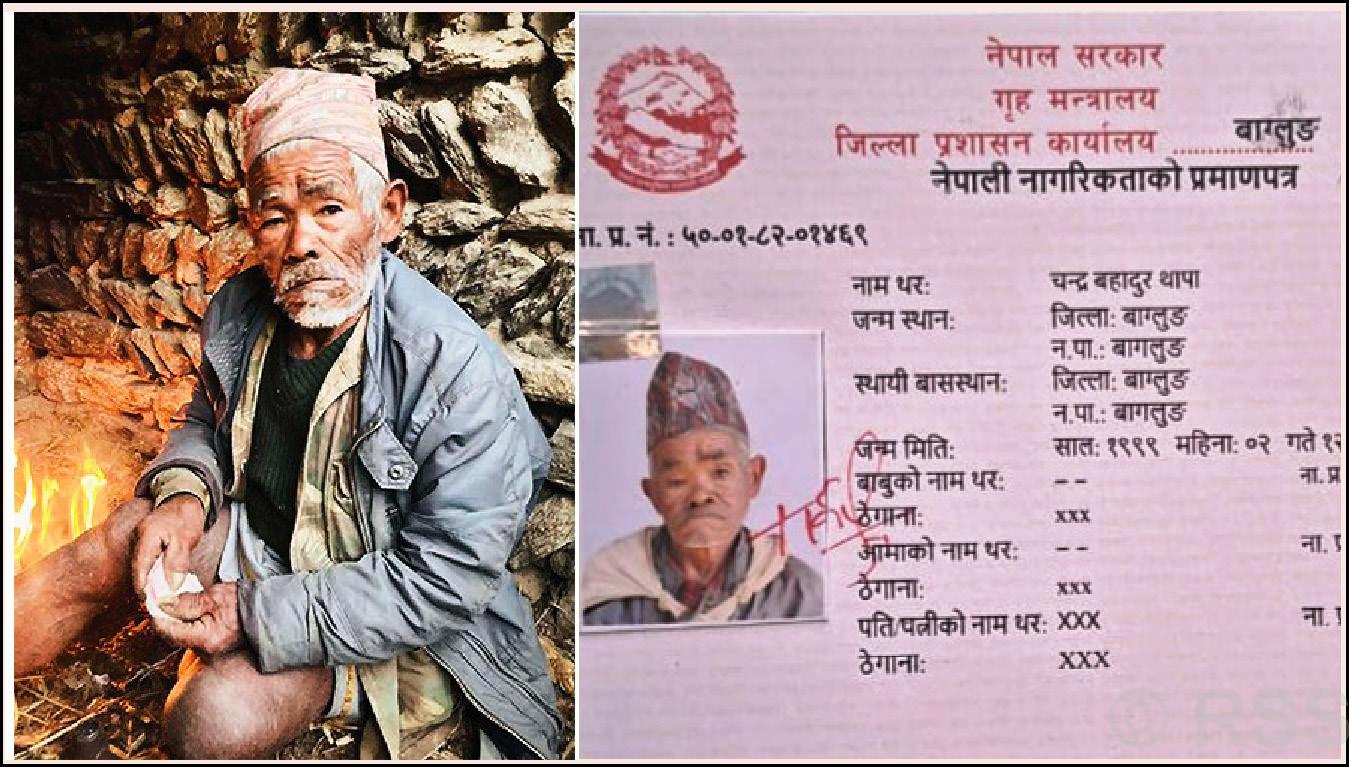 नेपाल सरकार
गृह मन्त्रालय
जिल्ला प्रशासन कार्यालय ..................... बाग्लुङ
नेपाली नागरिकताको प्रमाणपत्र
ना. प्र. नं. : ५०-०१-८२-०१४६९
नाम थर: चन्द्र बहादुर थापा
जन्म स्थान: जिल्ला: बाग्लुङ
न.पा.: बागलुङ
स्थायी बासस्थान: जिल्ला: बाग्लुङ
न.पा.: बागलुङ
जन्म मिति: साल: १९९९ महिना: ०२ गते १२
बाबुको नाम थर: -- ना. प्र
ठेगाना: xxx
आमाको नाम थर: -- ना. प्र
ठेगाना: xxx
पति/पत्नीको नाम थर: XXX ना. प्र
ठेगाना: XXX
RSS